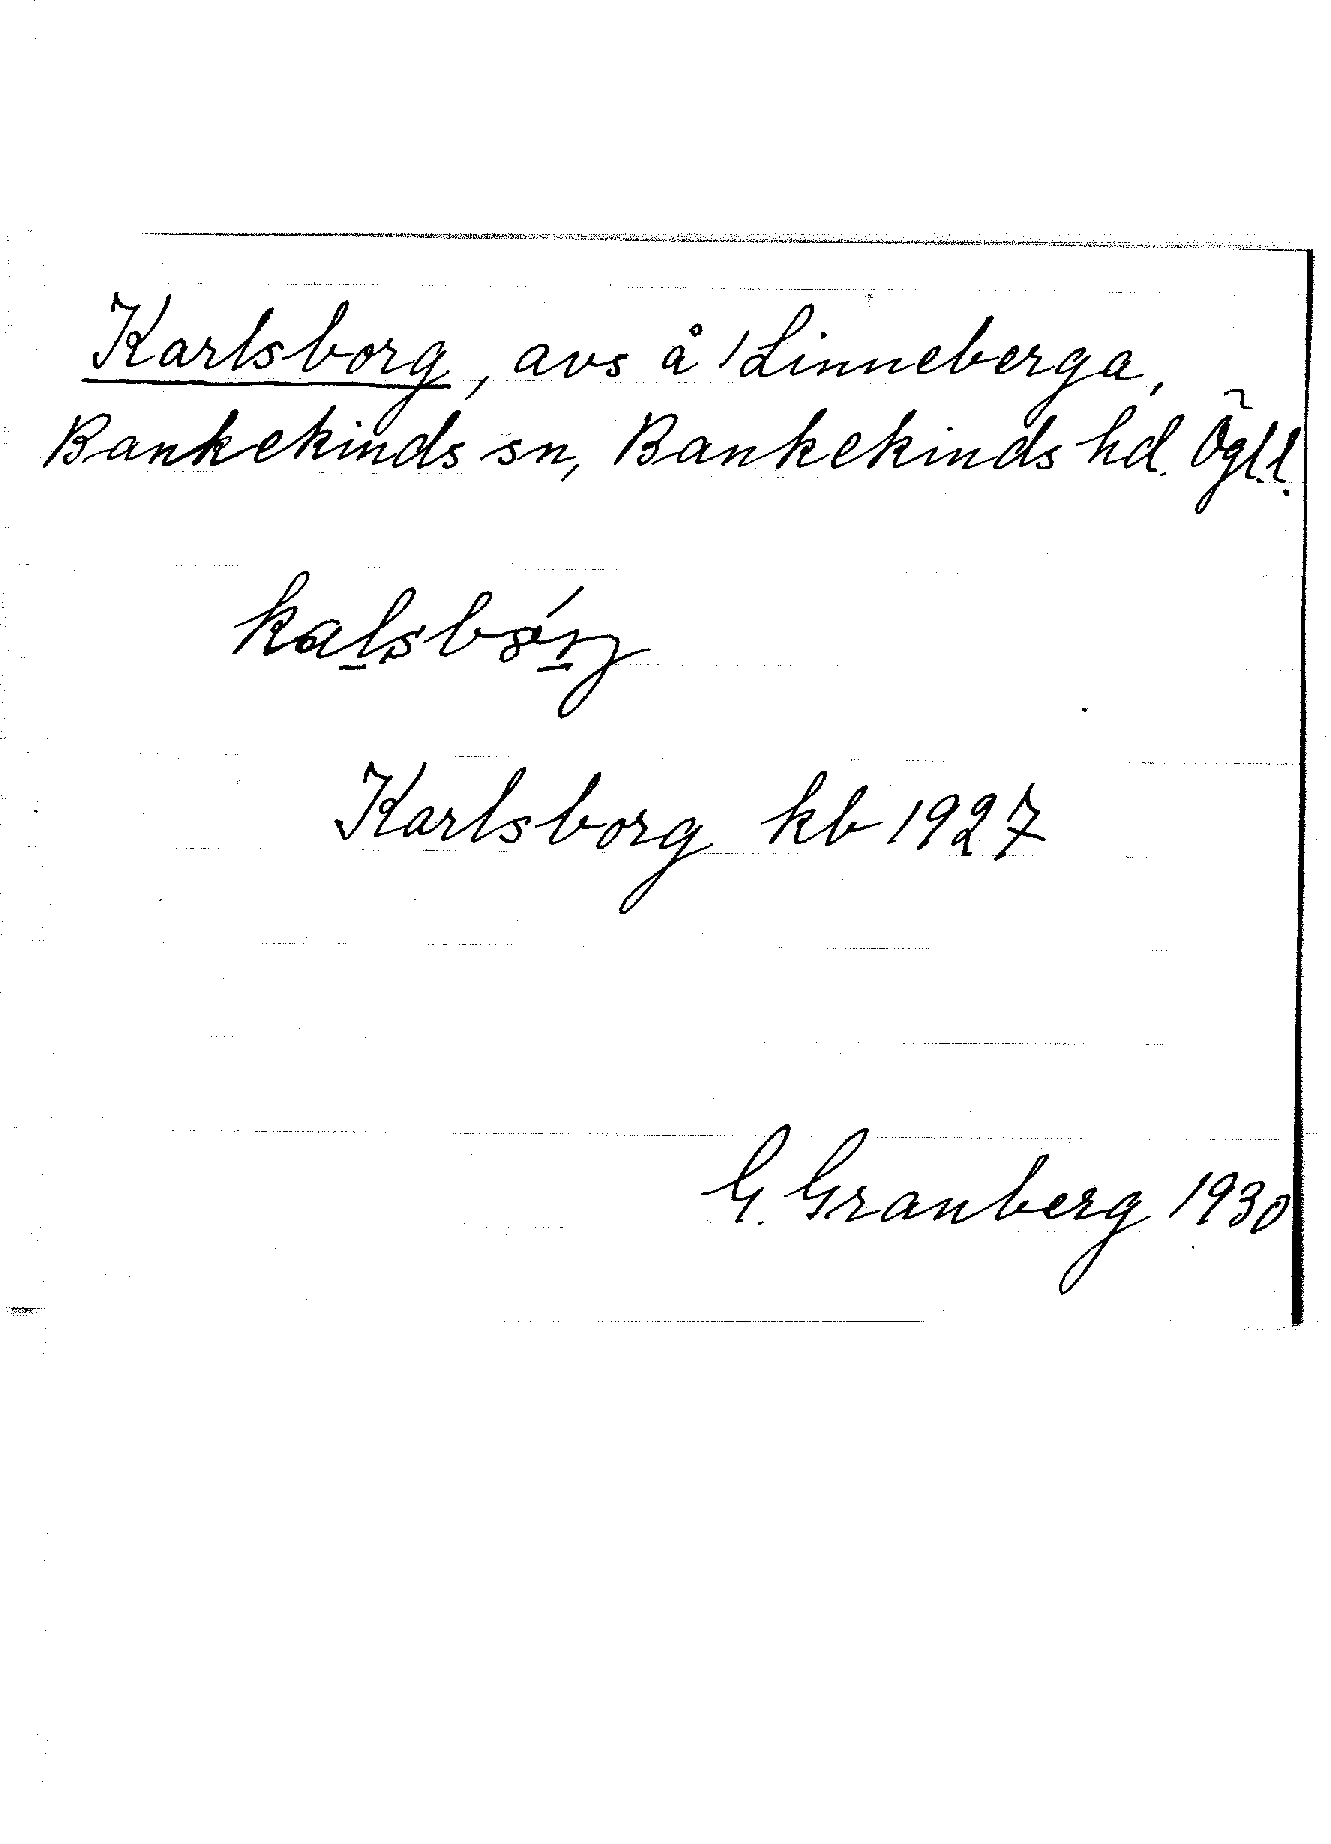 Karlsborg, avs å Linneberga,
Bankekinds sn, Bankekinds hd. Ögl.l.
Karlsborg kb 1927
G. Granberg 1930